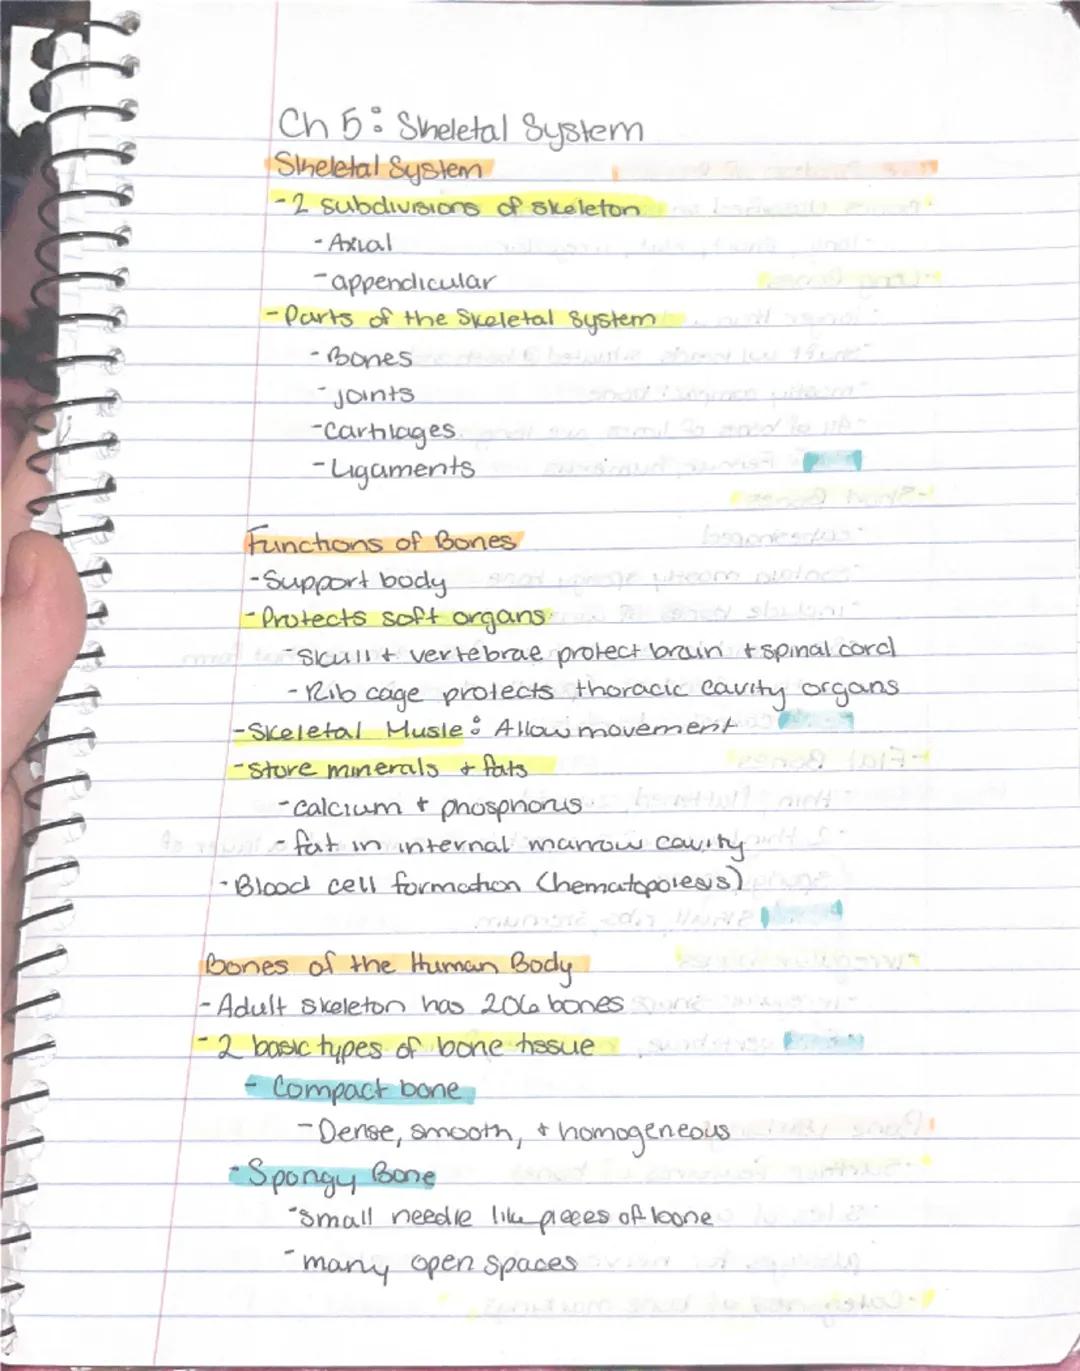 Ch 5: Skeletal System
Skeletal System
-2 subdivisions of skeleton
-Axial
-appendicular
-Parts of the Skeletal System
-Bones
-joints
-Cartilages
-Ligaments
Functions of Bones
-Support body
-Protects soft organs
-Skull + vertebrae protect brain + spinal cord
-Rib cage protects thoracic cavity organs
-Skeletal Musle: Allow movement
-Store minerals + fats
-calcium + phosphorus
-fat in internal marrow cavity
-Blood cell formation (hematopoiesis)
Bones of the Human Body
-Adult skeleton has 206 bones
-2 basic types of bone tissue
-Compact bone
-Dense, smooth, + homogeneous
-Spongy Bone
-small needle like pieces of bone
-many open spaces